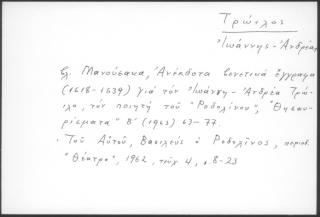 Τρώϊλος
Ἰωάννης-Ἀνδρέας
βλ. Μανούσακα, Ἀνέκδοτα βενετικά ἔγγραφα
(1618-1639) γιά τόν Ἰωάννη-Ἀνδρέα Τρώ-
ϊλο, τόν ποιητή τοῦ "Ροδολίνου", "Θησαυ-
ρίσματα" Β' (1963) 63-77.
· Τοῦ Αὐτοῦ, Βασιλεύς ὁ Ροδολῖνος, περιοδ.
"Θέατρο", 1962, τεῦχ 4, σ. 8-23